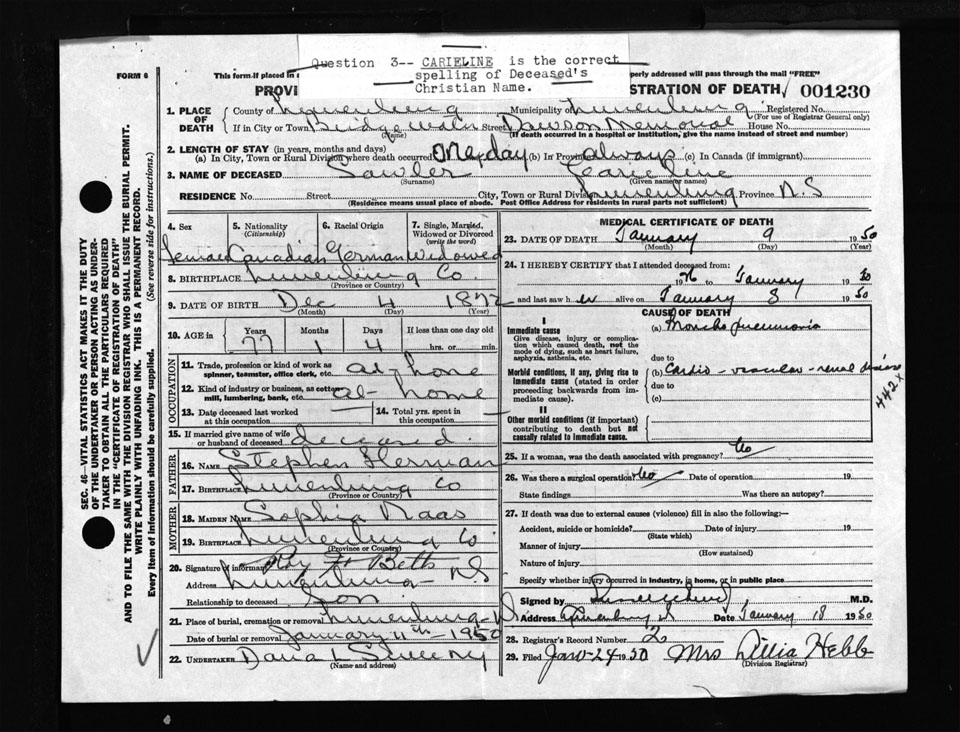 Question 3-- CARIELINE is the correct
spelling of Deceased's
Christian Name.
FORM 6
This form if placed in
perly addressed will pass through the mail "FREE"
PROVI
STRATION OF DEATH
001230
1. PLACE OF DEATH
County of Lunenburg Municipality of Lunenburg Registered No.
(For use of Registrar General only)
If in City or Town Bridgewater Street Dawson Memorial House No.
(Name)
(If death occurred in a hospital or institution, give the name instead of street and number)
2. LENGTH OF STAY (in years, months and days)
(a) In City, Town or Rural Division where death occurred One day (b) In Province always (c) In Canada (if immigrant)
3. NAME OF DECEASED Sawler Carieline
(Surname) (Given name or names)
RESIDENCE No. Street City, Town or Rural Division Lunenburg Province N.S
(Residence means usual place of abode. Post Office Address for residents in rural parts not sufficient)
4. Sex
5. Nationality
(Citizenship)
6. Racial Origin
7. Single, Married, Widowed or Divorced
(write the word)
Female Canadian German Widowed
8. BIRTHPLACE Lunenburg Co.
(Province or Country)
9. DATE OF BIRTH Dec 4 1872
(Month) (Day) (Year)
10. AGE in
Years Months Days If less than one day old
77 1 4 hrs. or min.
OCCUPATION
11. Trade, profession or kind of work as
spinner, teamster, office clerk, etc. at-home
12. Kind of industry or business, as cotton
mill, lumbering, bank, etc. at-home
13. Date deceased last worked
at this occupation
14. Total yrs. spent in
this occupation
15. If married give name of wife
or husband of deceased deceased.
FATHER
16. NAME Stephen Herman
17. BIRTHPLACE Lunenburg Co
(Province or Country)
MOTHER
18. MAIDEN NAME Sophia Naas
19. BIRTHPLACE Lunenburg Co.
(Province or Country)
20. Signature of informant Roy H Betts
Address Lunenburg- NS
Relationship to deceased Son
21. Place of burial, cremation or removal Lunenburg-NS
Date of burial or removal January 11th-1950
22. UNDERTAKER Dana L Sweeny
(Name and address)
MEDICAL CERTIFICATE OF DEATH
23. DATE OF DEATH January 9 1950
(Month) (Day) (Year)
24. I HEREBY CERTIFY that I attended deceased from:
19 to January 1950
and last saw her alive on January 8 1950
CAUSE OF DEATH
I
Immediate cause
Give disease, injury or complication
which caused death, not the
mode of dying, such as heart failure,
asphyxia, asthenia, etc.
(a) Broncho pneumonia
due to
Morbid conditions, if any, giving rise to
immediate cause (stated in order
proceeding backwards from immediate
cause).
(b) Cardio-vascular-renal disease
due to
(c)
442x
II
Other morbid conditions (if important)
contributing to death but not
causally related to immediate cause.
25. If a woman, was the death associated with pregnancy? No
26. Was there a surgical operation? No Date of operation 19
State findings Was there an autopsy?
27. If death was due to external causes (violence) fill in also the following:—
Accident, suicide or homicide? Date of injury 19
(State which)
Manner of injury
(How sustained)
Nature of injury
Specify whether injury occurred in industry, in home, or in public place
Signed by M.D.
Address Lunenburg NS Date January 18 1950
28. Registrar's Record Number 2
29. Filed Jan-24 1950 Mrs Lillia Hebb
(Division Registrar)
SEC. 46—VITAL STATISTICS ACT MAKES IT THE DUTY
OF THE UNDERTAKER OR PERSON ACTING AS UNDERTAKER
TO OBTAIN ALL THE PARTICULARS REQUIRED
IN THE "CERTIFICATE OF REGISTRATION OF DEATH"
AND TO FILE THE SAME WITH THE DIVISION REGISTRAR WHO SHALL ISSUE THE BURIAL PERMIT.
WRITE PLAINLY WITH UNFADING INK. THIS IS A PERMANENT RECORD.
Every item of information should be carefully supplied. (See reverse side for instructions.)